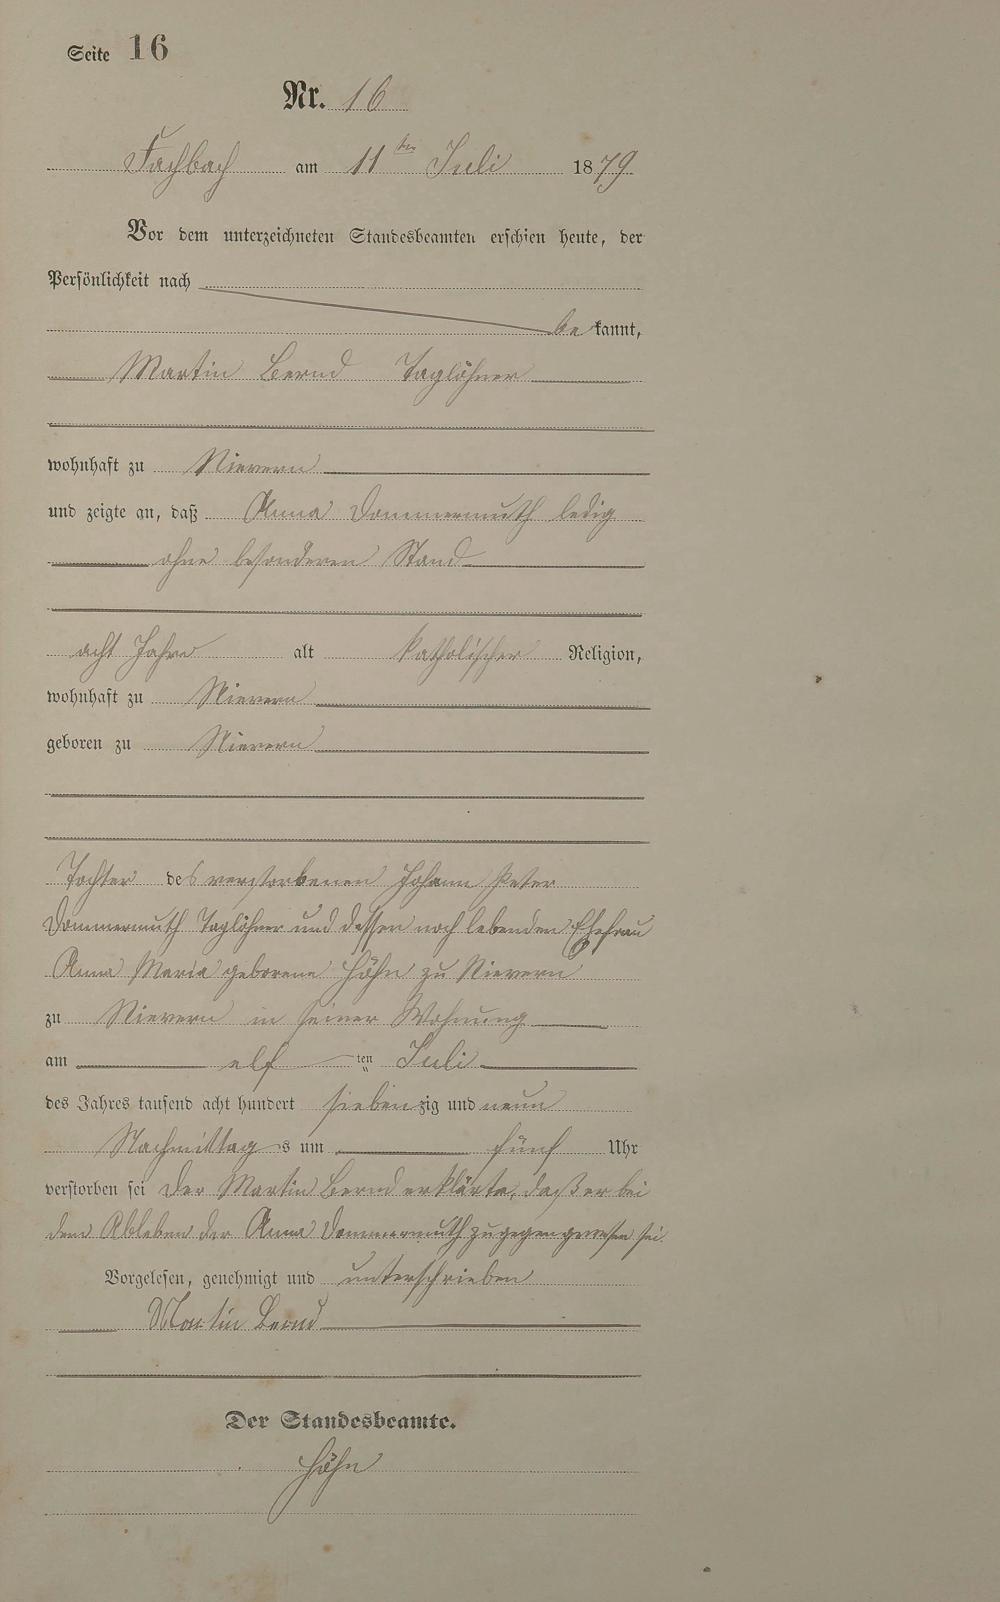 Seite 16
Nr. 16
Fachbach am 11ten Juli 1879.
Vor dem unterzeichneten Standesbeamten erschien heute, der
Persönlichkeit nach
bekannt,
Martin Bernd Taglöhner
wohnhaft zu Nievern
und zeigte an, daß Anna Dommermuth ledig
ohne besonderen Stand
acht Jahre alt katholischer Religion,
wohnhaft zu Nievern
geboren zu Nievern
Tochter des verstorbenen Johann Peter
Dommermuth Taglöhner und dessen noch lebenden Ehefrau
Anna Maria geborene Höhn zu Nievern
zu Nievern in seiner Wohnung
am elf ten Juli
des Jahres tausend acht hundert siebenzig und neun
Nachmittags um fünf Uhr
verstorben sei Der Martin Bernd erklärte, daß er bei
dem Ableben der Anna Dommermuth zugegen gewesen sei.
Vorgelesen, genehmigt und unterschrieben
Martin Bernd
Der Standesbeamte.
Höhn